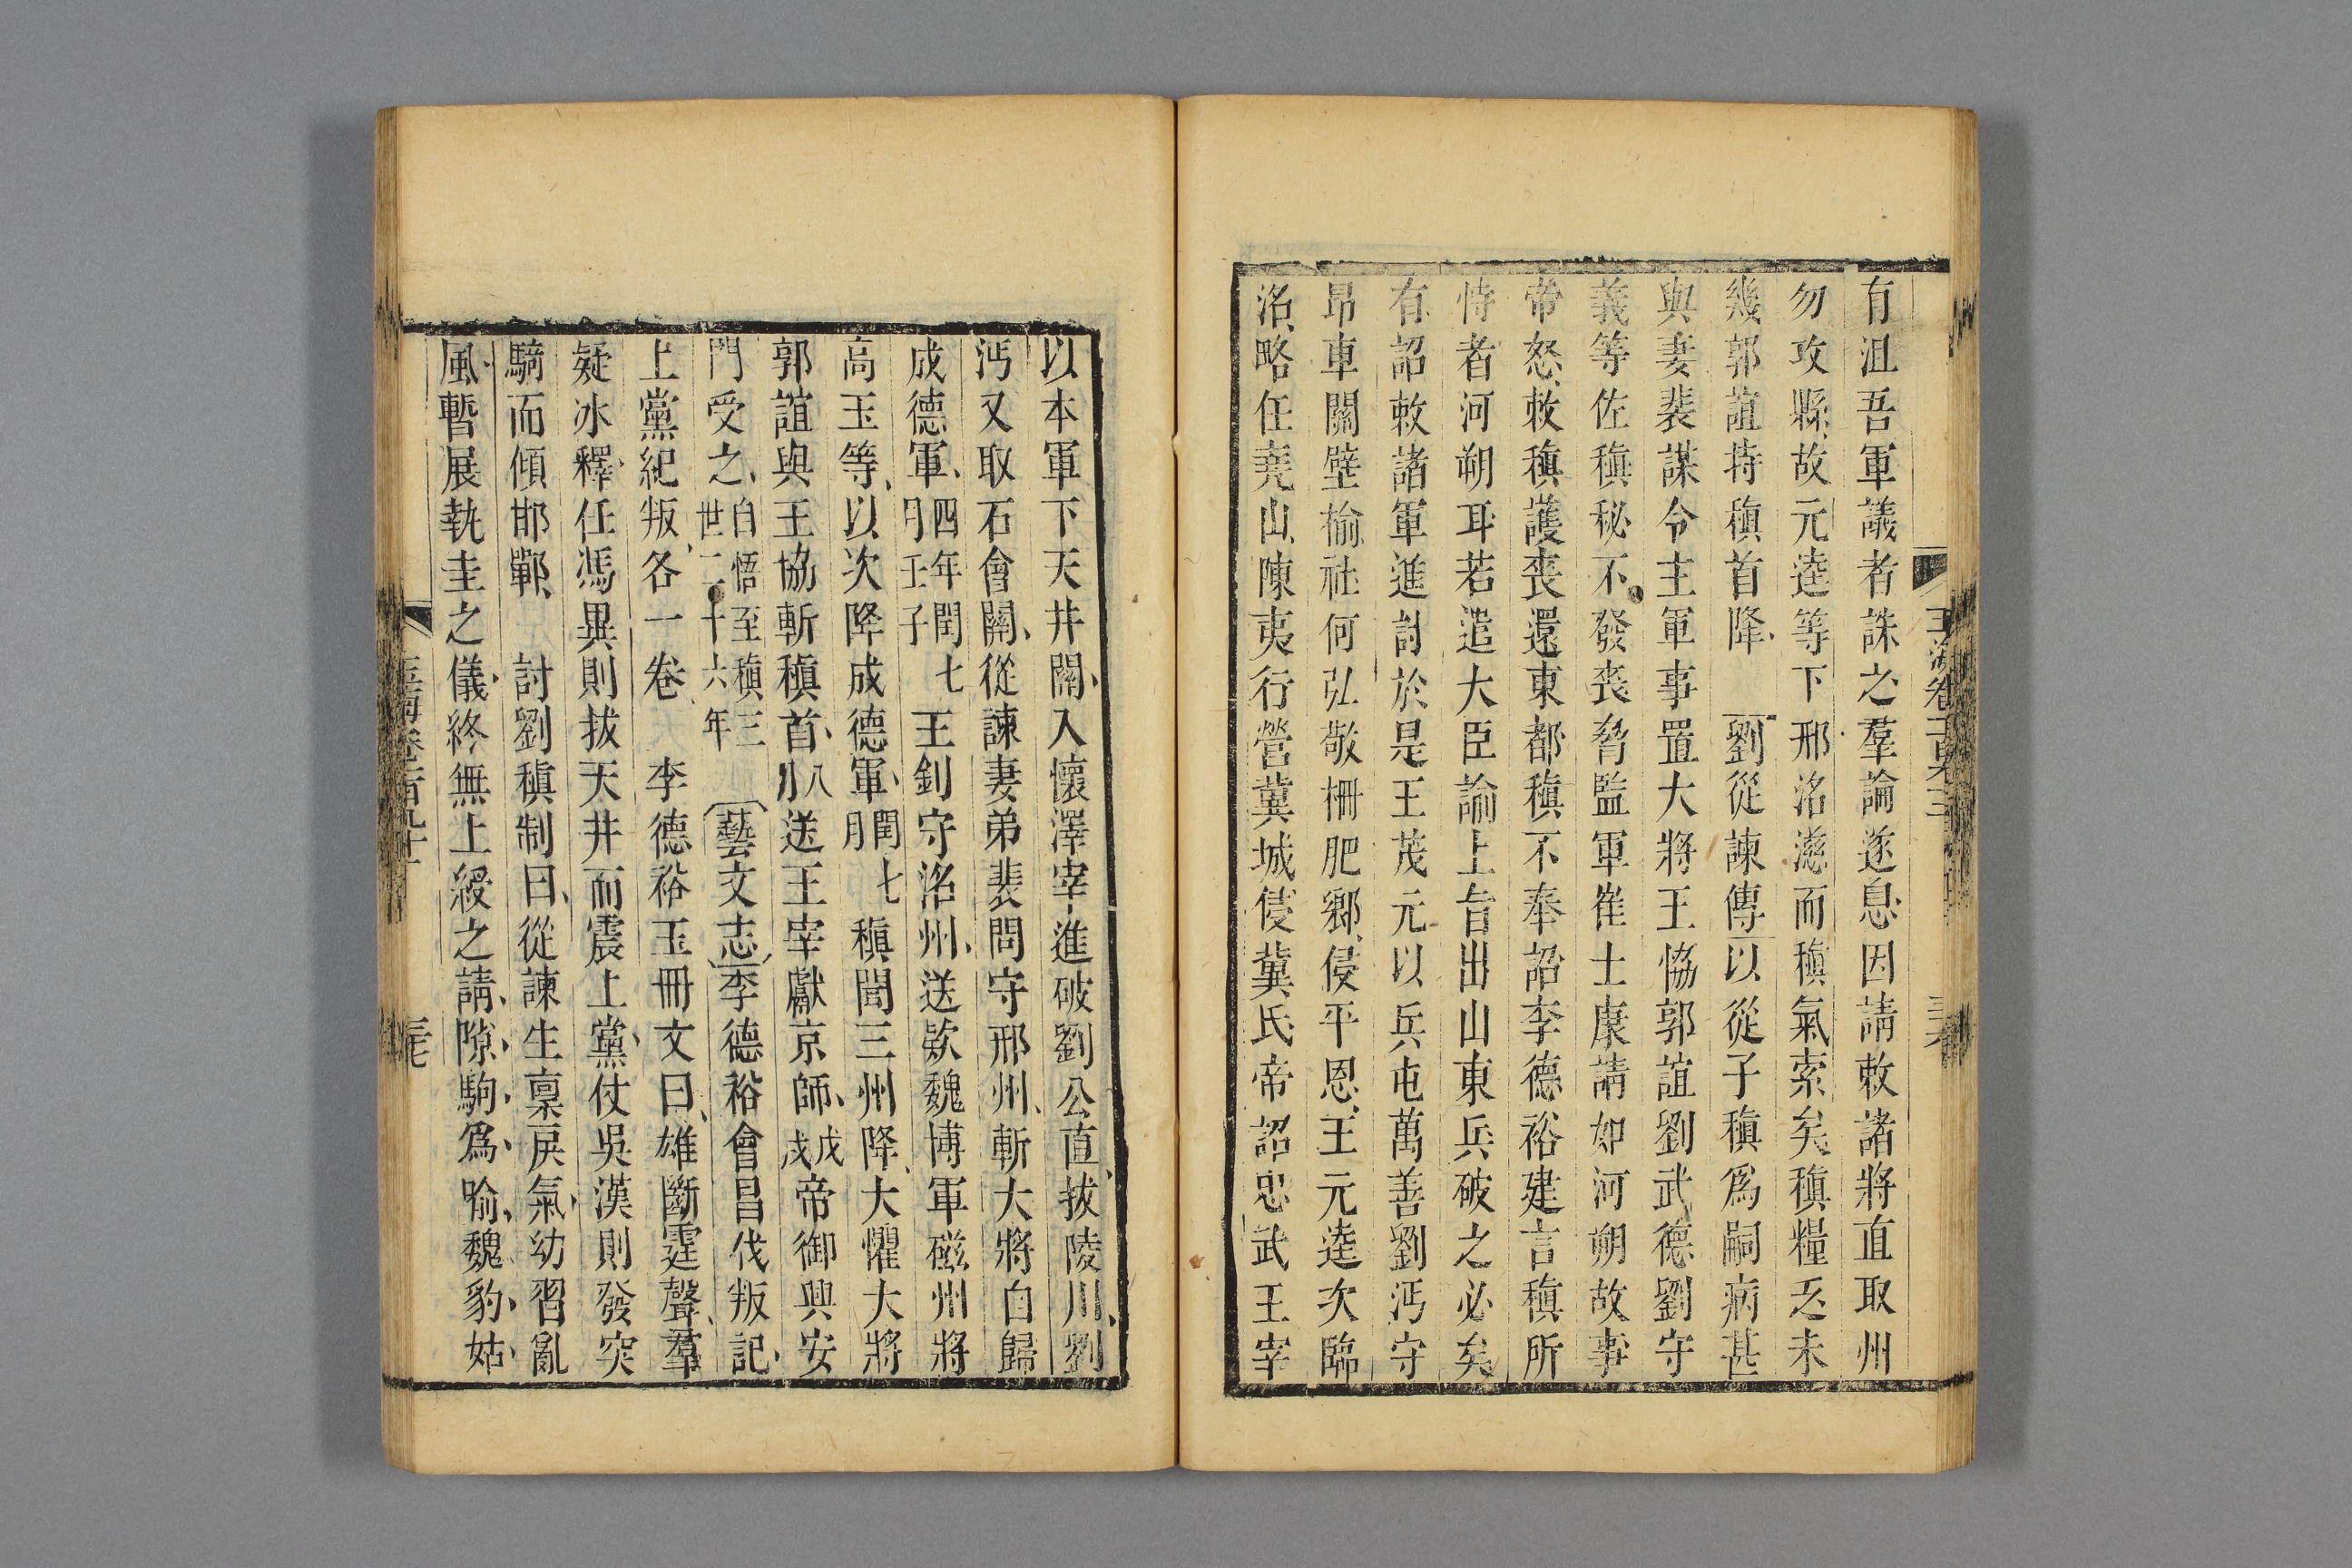 有沮吾軍議者誅之羣論遂息因請敕諸將直取州
勿攻縣故元逵等下邢洺滋而稹氣索矣稹糧乏未
幾郭誼持稹首降 劉從諫傳以從子稹爲嗣病甚
與妻裴謀令主軍事置大將王恊郭誼劉武德劉守
義等佐稹秘不發喪脅監軍崔士康請如河朔故事
帝怒敕稹護喪還東都稹不奉詔李德裕建言稹所
恃者河朔耳若遣大臣諭上旨出山東兵破之必矣
有詔敕諸軍進討於是王茂元以兵屯萬善劉沔守
昻車關壁榆社何弘敬柵肥鄉侵平恩王元逵次臨
洺略任堯山陳夷行營冀城侵冀氏帝詔忠武王宰
以本軍下天井關入懷澤宰進破劉公直拔陵川劉
沔又取石會關從諫妻弟裴問守邢州斬大將自歸
成德軍四年閏七月壬子王釗守洺州送欵魏博軍磁州將
高玉等以次降成德軍閏七月稹聞三州降大懼大將
郭誼與王協斬稹首八月送王宰獻京師戊戌帝御興安
門受之自悟至稹三世二十六年 藝文志李德裕會昌伐叛記
上黨紀叛各一卷 李德裕玉冊文曰雄斷霆聲羣
疑冰釋任馮異則拔天井而震上黨仗吳漢則發突
騎而傾邯鄲 討劉稹制曰從諫生稟戾氣幼習亂
風暫展執圭之儀終無上綬之請隙駒爲喻魏豹姑